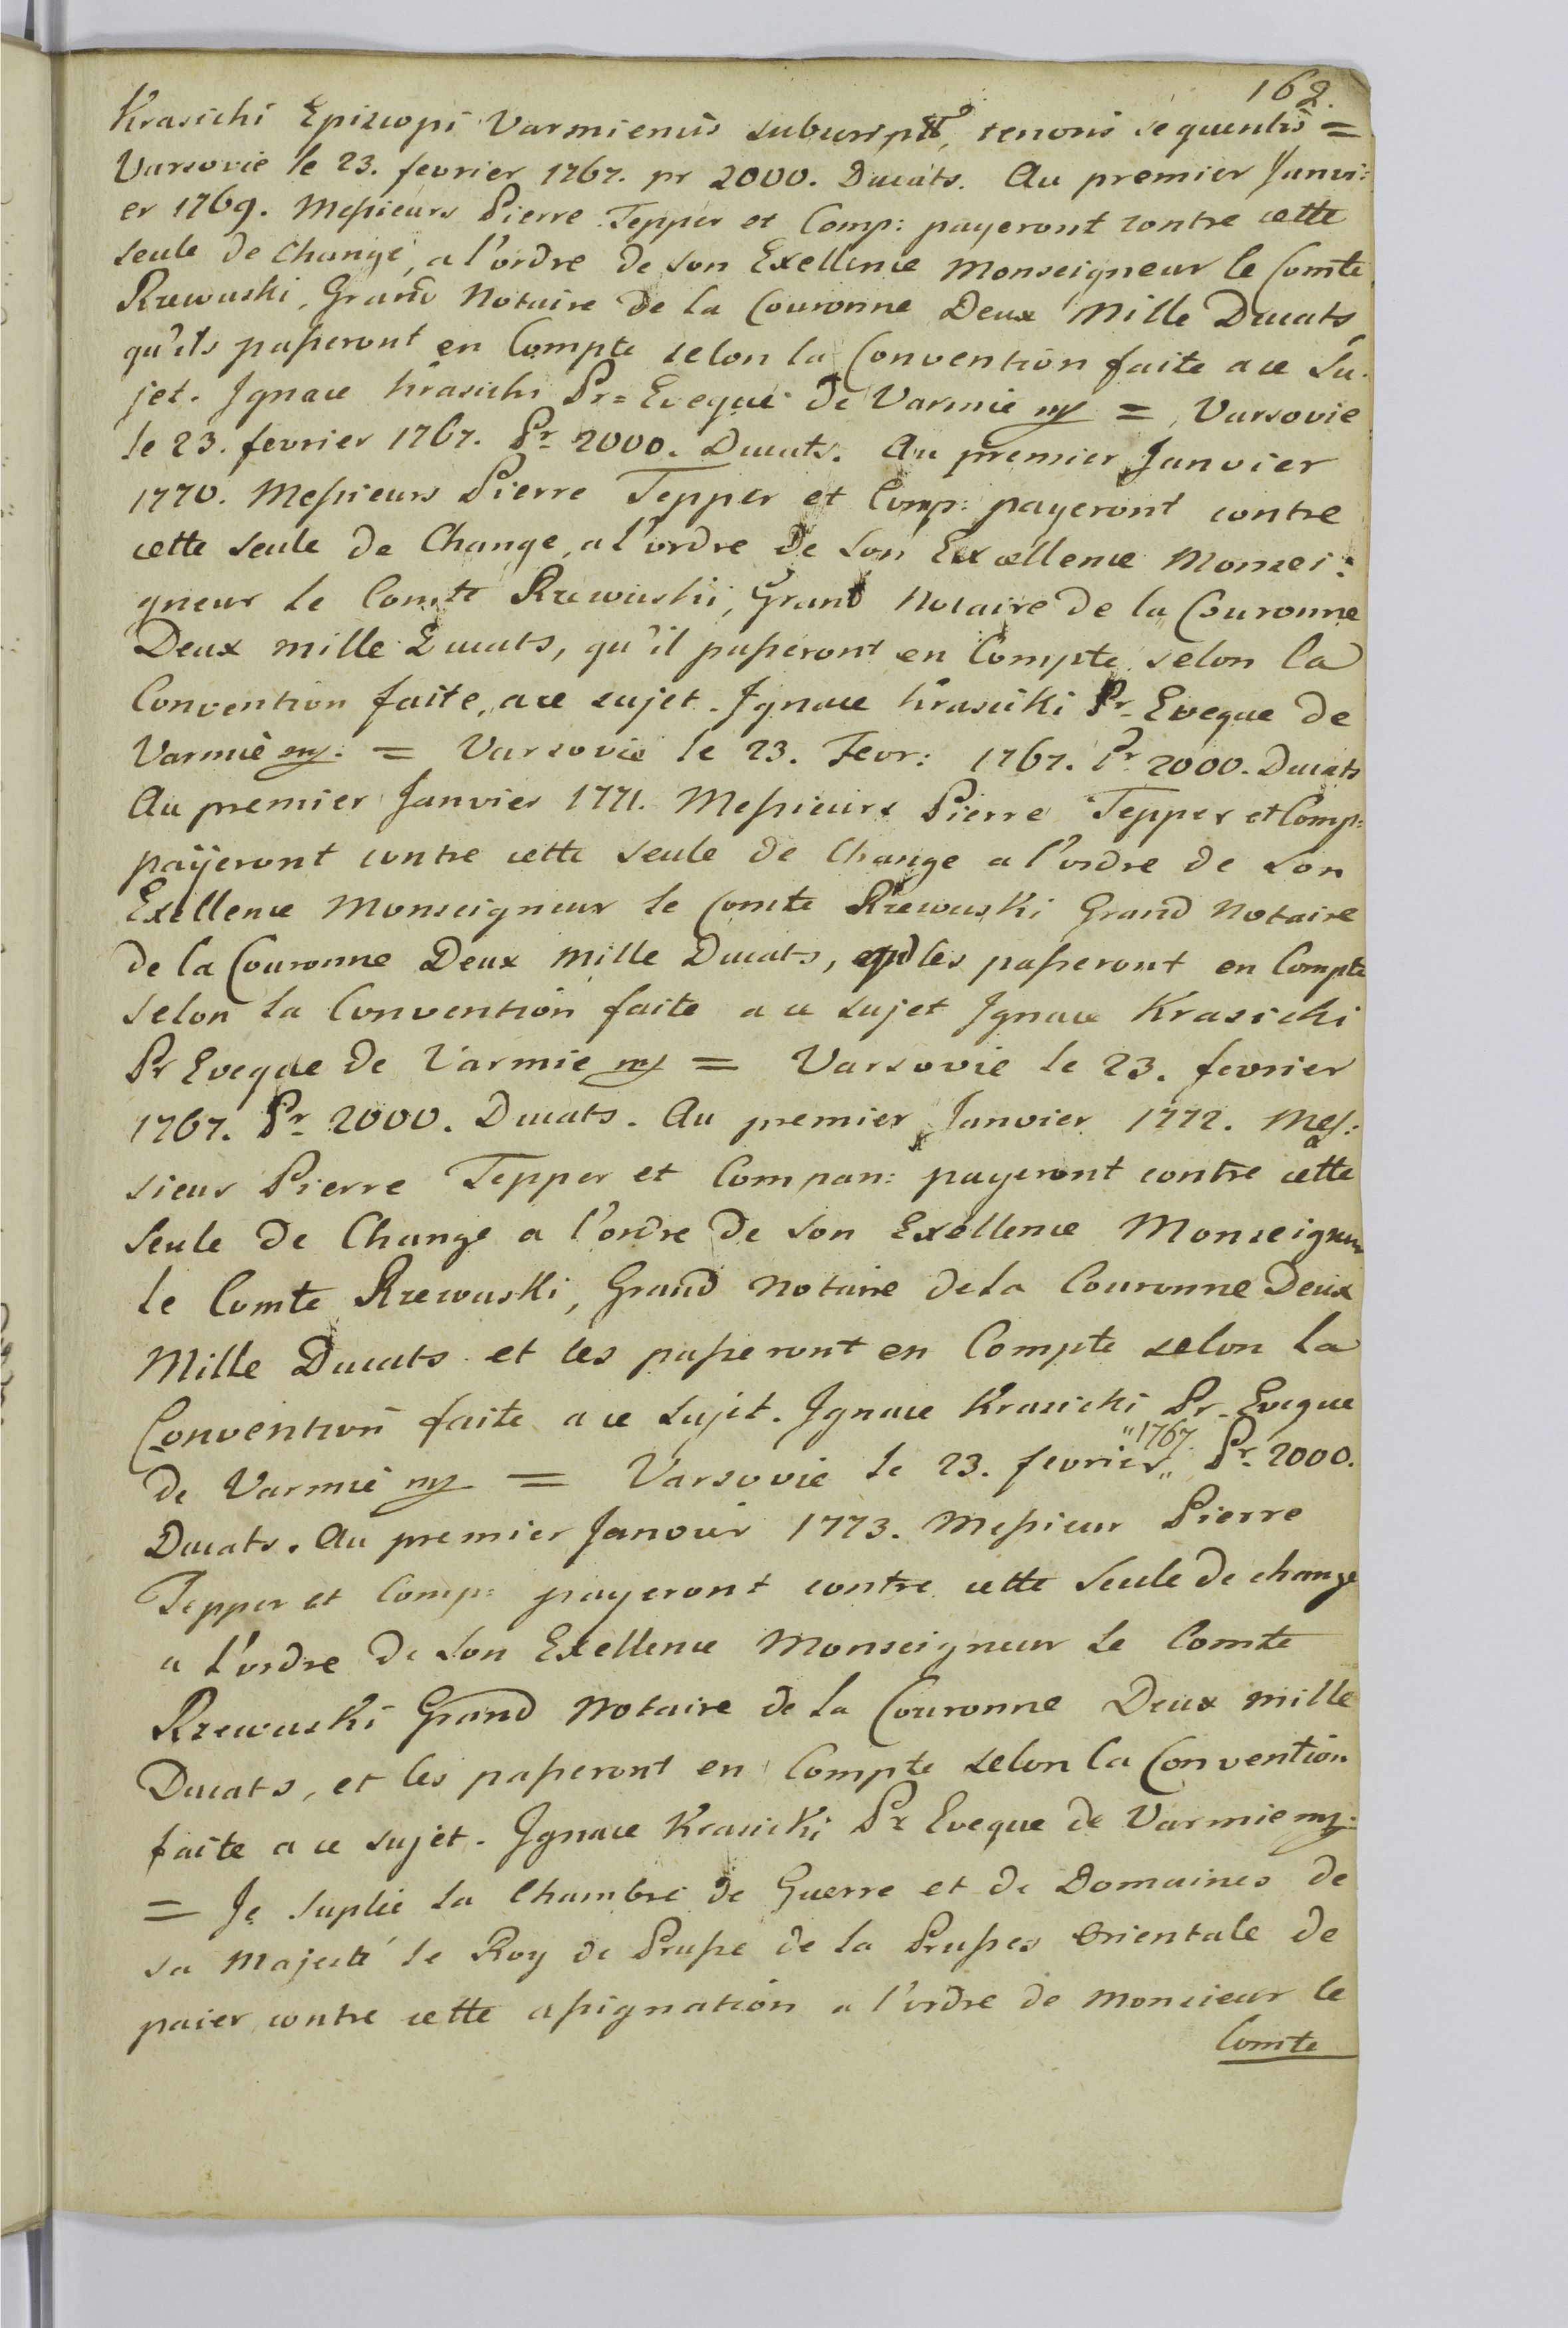 162.
Krasicki Episcopi Varmiensis subscript, tenoris sequentis =
Varsovie le 23. fevrier 1767. pr 2000. Ducats. Au premier Janvi:
er 1769. Messieurs Pierre Tepper et Comp: payeront contre cette
seule de Change, a l'ordre de son Exellence Monseigneur le Comte
Rzewuski, Grand Notaire de la Couronne Deux Mille Ducats
qu'ils passeront en Compte selon la Convention faite a ce Su-
jet. Ignace Krasicki Pr= Eveque de Varmie mp = Varsovie
le 23. fevrier 1767. Pr 2000. Ducats. Au premier Janvier
1770. Messieurs Pierre Tepper et Comp: payeront contre
cette seule de Change, a l'ordre de Son Excellence Monsei:
gneur le Comte Rzewuski, Grand Notaire de la Couronne
Deux mille Ducats, qu'il passeront en Compte selon la
Convention faite, a ce sujet. Ignace Krasicki Pr- Eveque de
Varmie mp: = Varsovie le 23. Fevr: 1767. Pr 2000. Ducats
Au premier Janvier 1771. Messieurs Pierre Tepper et Comp:
payeront contre cette seule de Change a l'ordre de son
Exellence Monseigneur le Comte Rzewuski Grand Notaire
de la Couronne Deux Mille Ducats, les passeront en Compte
selon la Convention faite a ce sujet Ignace Krasicki
Pr Eveque de Varmie mp = Varsovie le 23. fevrier
1767. Pr 2000. Ducats. Au premier Janvier 1772. Mes:
sieur Pierre Tepper et Compan: payeront contre cette
Seule de Change a l'ordre de Son Exellence Monseigneur
le Comte Rzewuski, Grand Notaire de la Couronne Deux
Mille Ducats et les passeront en Compte selon la
Convention faite a ce sujet. Ignace Krasicki Pr- Eveque
de Varmie mp = Varsovie le 23. fevrier "1767." Pr 2000.
Ducats. Au premier Janvier 1773. Messieur Pierre
Tepper et Comp: payeront contre cette Seule de change
a l'ordre de Son Exellence Monseigneur le Comte
Rzewuski Grand Notaire de la Couronne Deux mille
Ducats, et les passeront en Compte selon la Convention
faite a ce sujet. Ignace Krasicki Pr Eveque de Varmie mp:
= Je suplie la Chambre de Guerre et de Domaines de
sa Majesté le Roy de Prusse de la Prusses Orientale de
paier contre cette assignation a l'ordre de Monsieur le
Comte